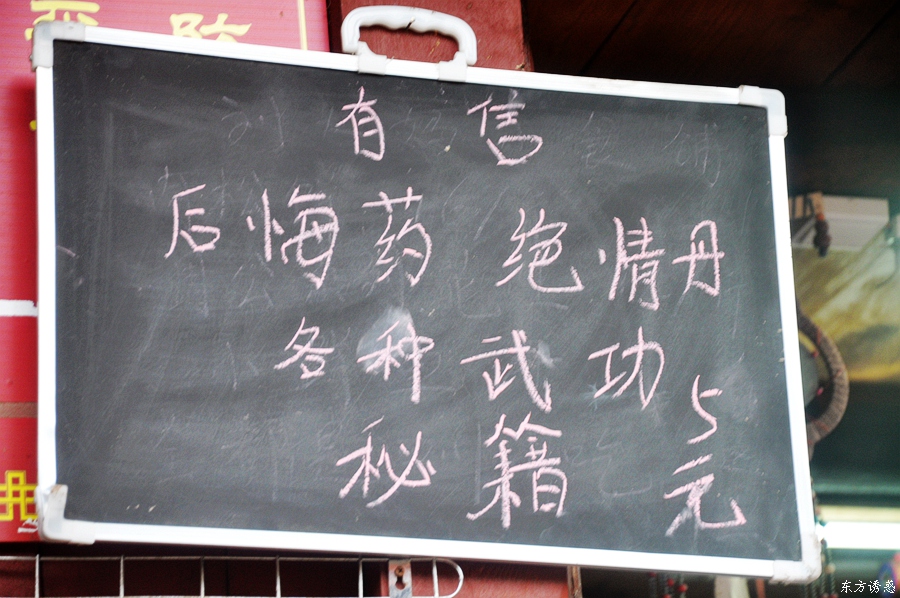 有信
后悔药 绝情丹
各种武功
秘籍 5元
东方诱惑